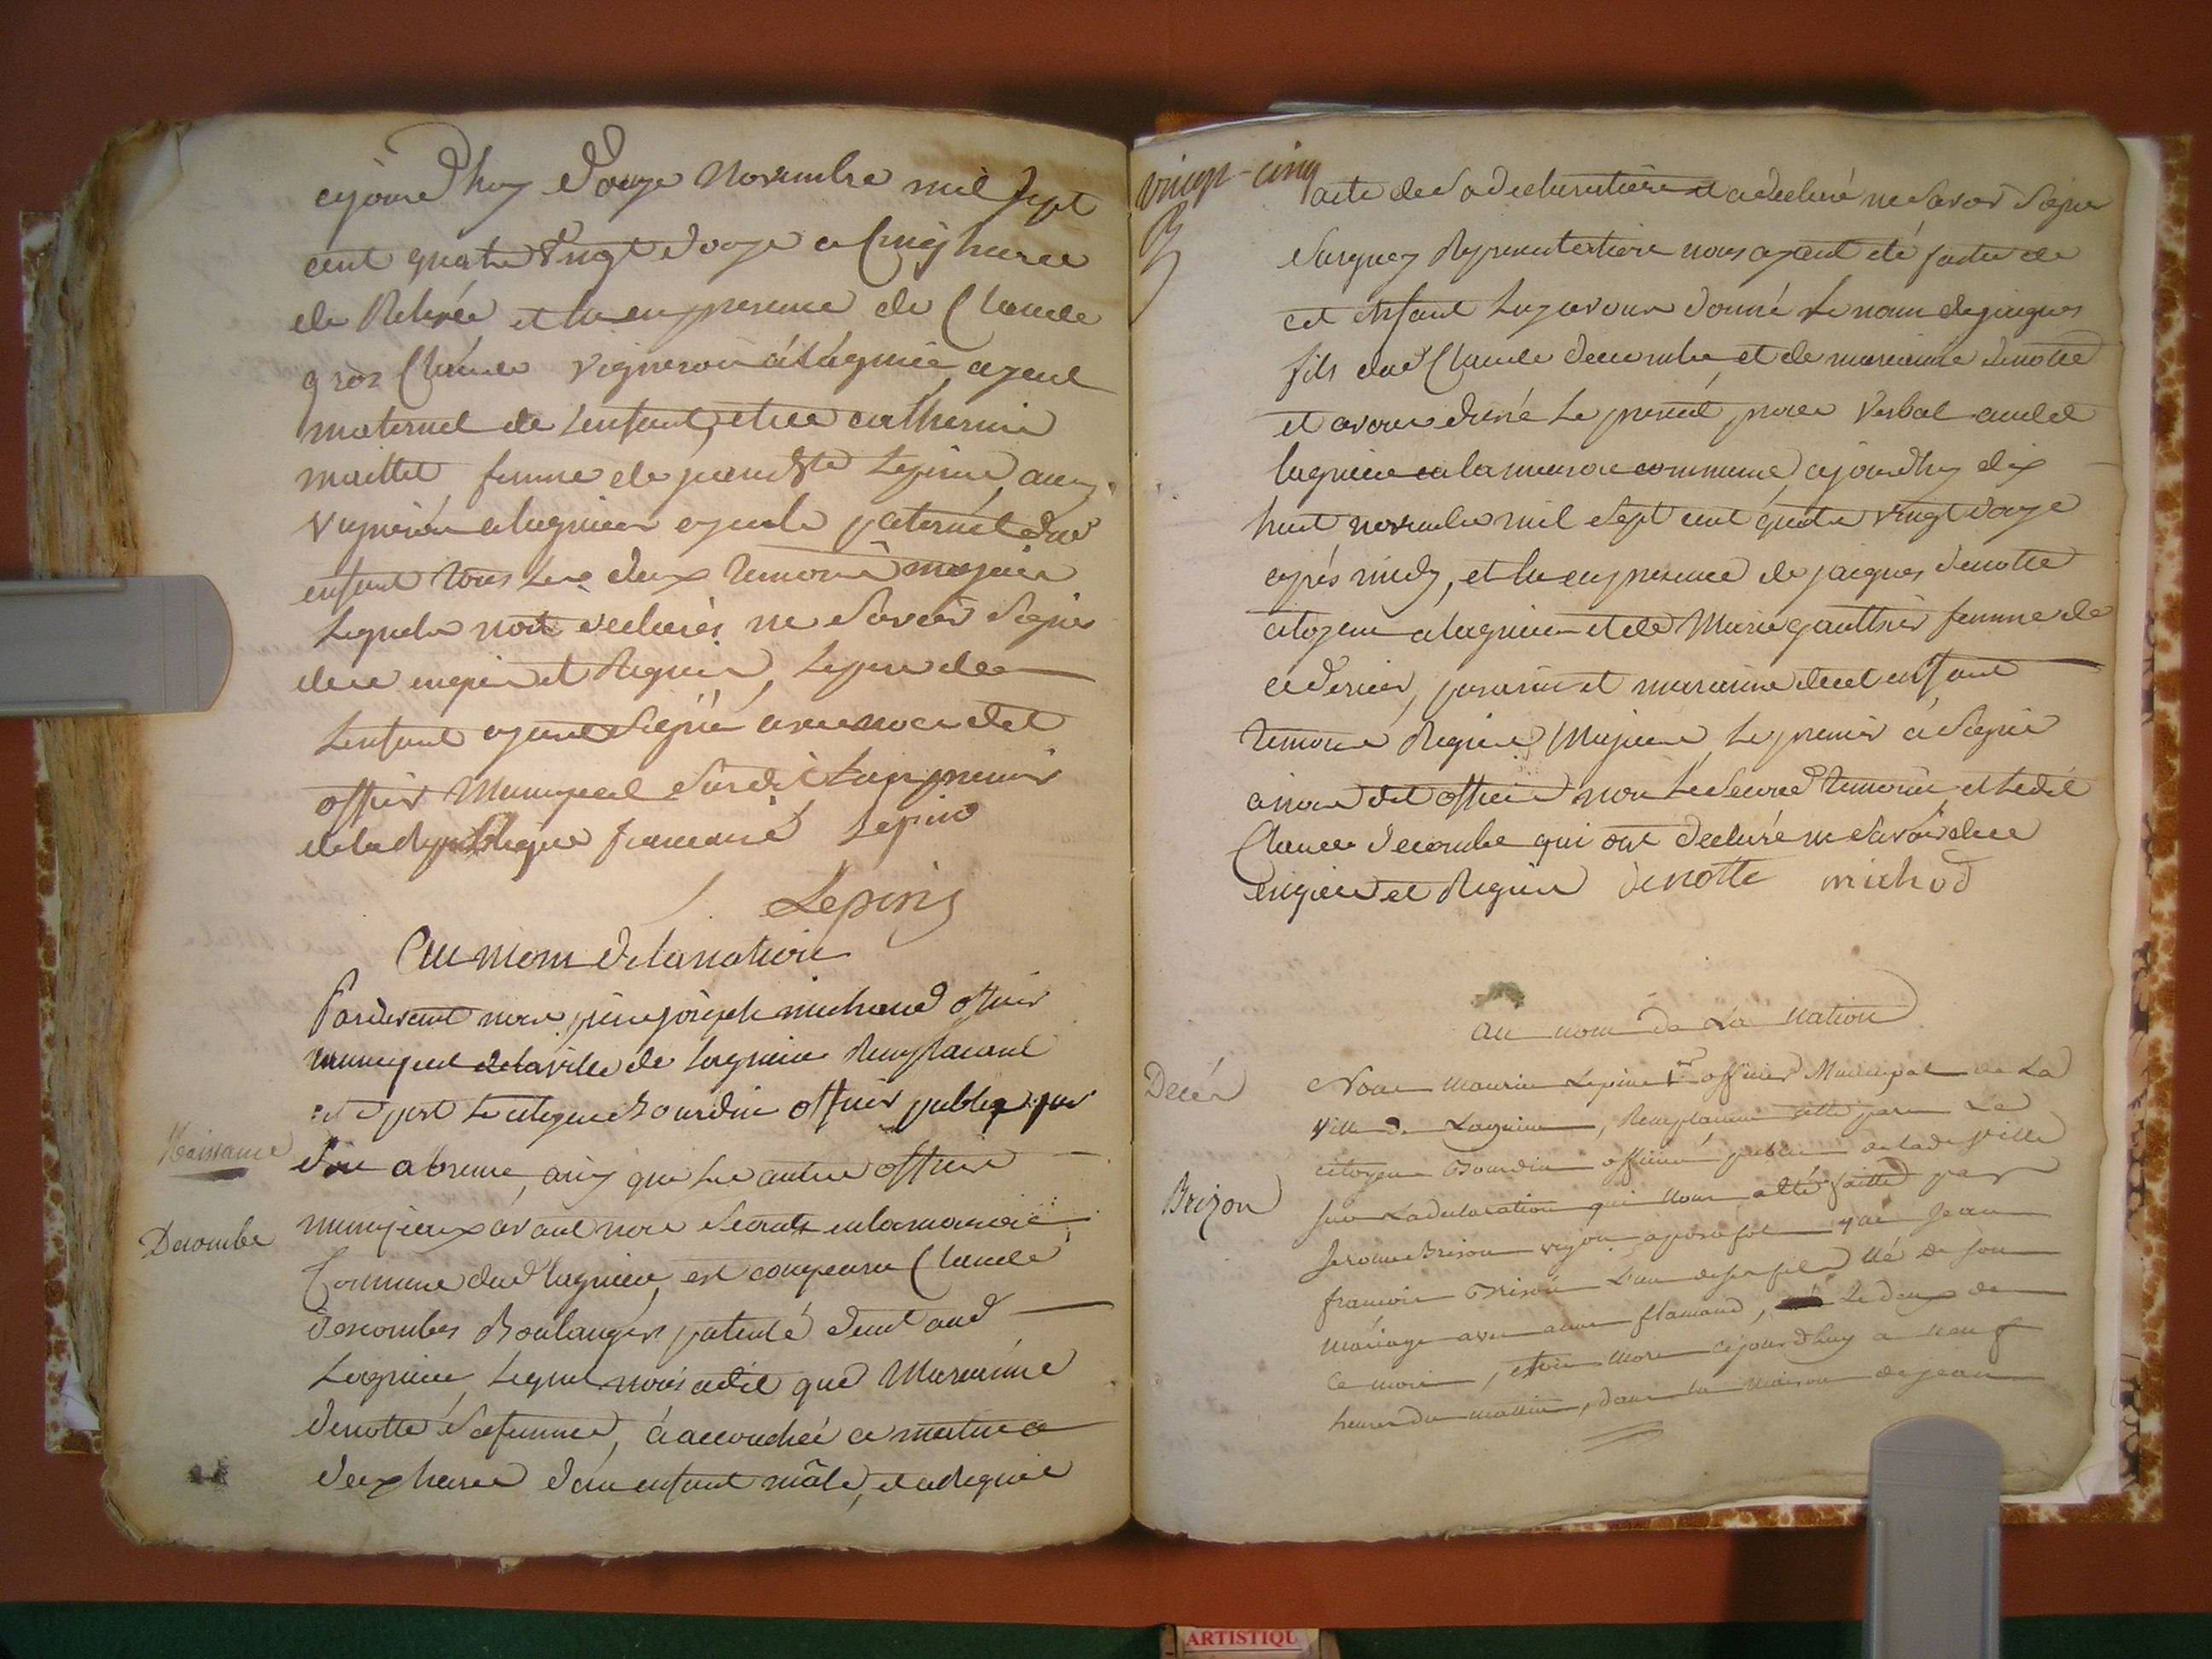 cejourdhuy douze Novembre mil sept
cent quatre vingt douze a Cinq heures
de Relevée et lu en presence de Claude
gros Claude vigneron à Lagnieu, ayeul
maternel de Lenfant, et de catherine
maittet femme de jean Bte Lepine aussy
vigneron a lagnieu ayeule paternel dud
enfant tous les deux temoins majeurs
Lequels nont declarés ne Savoir Signer
de ce enquis et Requis, Le pere de
Lenfant ayant Signé avec nous dit
officier Municipal Susdit Lan premier
de la Republique francaise Lepine
Lepine
Au nom de la nation
Pardevant nous pierre joseph michaud officier
municipal de la ville de lagnieu Remplacant
le citoyen Bourdin officier publiq par
Naissance
son absence, ainsy que les autres officiers
municipaux avant nous Secrets en la maison
Decombe
Commune dud lagnieu, est comparu Claude
decombes Boulanger patenté dem.t aud
Lagnieu, Lequel nous a dit que Marianne
denotte Sa femme, à accouchée ce matin a
deux heures d'un enfant mâle, et a Requis
vingt-cinq
acte de Sa declaration et a declaré ne Savoir Signer
Surquoy Representation nous ayant été faite de
cet enfant Luy avons donné Le nom de jaques
fils dud Claude decombe et de marianne denotte
et avons dressé Le present proces verbal audit
lagnieu en la maison commune cejourdhuy dix
huit novembre mil Sept cent quatre vingt douze
après midy, et lu en presence de jaques denotte
citoyen a lagnieu et de Marie gauthier femme de
ce dernier, parain et maraine de cet enfant
temoins Requis Majeurs Le premier a Signé
a nous dit officier non Le Second temoin et Ledit
Claude decombe qui ont declaré ne Savoir de ce
enquis et Requis denotte michod
au nom de La Nation
Decés
Nous Maurice Lepine 1er officier Municipal de La
ville de Lagnieu, Remplacant cette part Le
citoyen Bourdin officier public de lade ville
Brizon
Sur La declaration qui nous a été faitte par
Jerome Brison que Jean
francois Brison L'un de ses fils Né de son
mariage avec anne flamand, Le deux de
ce mois, etoit mort cejourdhuy a neuf
heures du mattin, dans la maison de jean